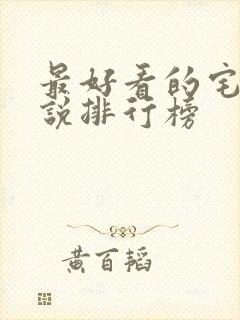 最好看的宅
說排行榜
黄百韬